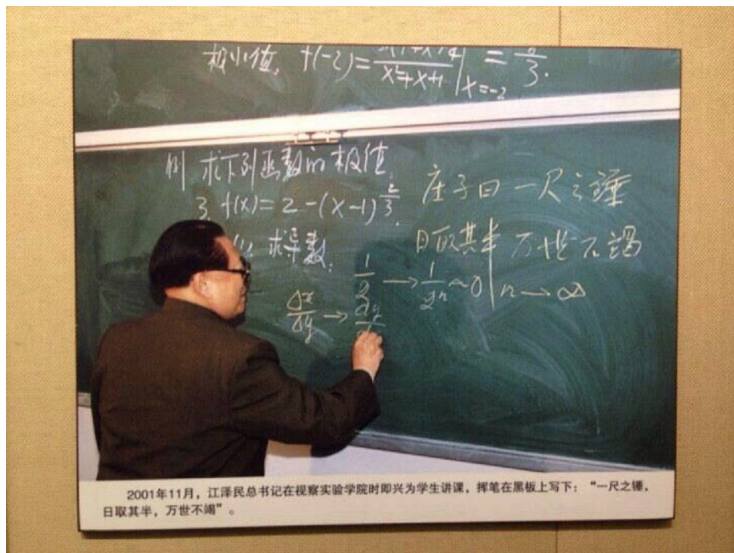 极小值, f(-2)= x²+x+1 |x=-2 = 3.
例 求下列函数的极值.
3. f(x)=2-(x-1)^(2/3).
(1) 求导数:
庄子曰 一尺之锤
日取其半 万世不竭
1/2 → 1/2ⁿ ~ 0 | n → ∞
Δx/Δy → dy
2001年11月，江泽民总书记在视察实验学院时即兴为学生讲课，挥笔在黑板上写下：“一尺之锤，
日取其半，万世不竭”。